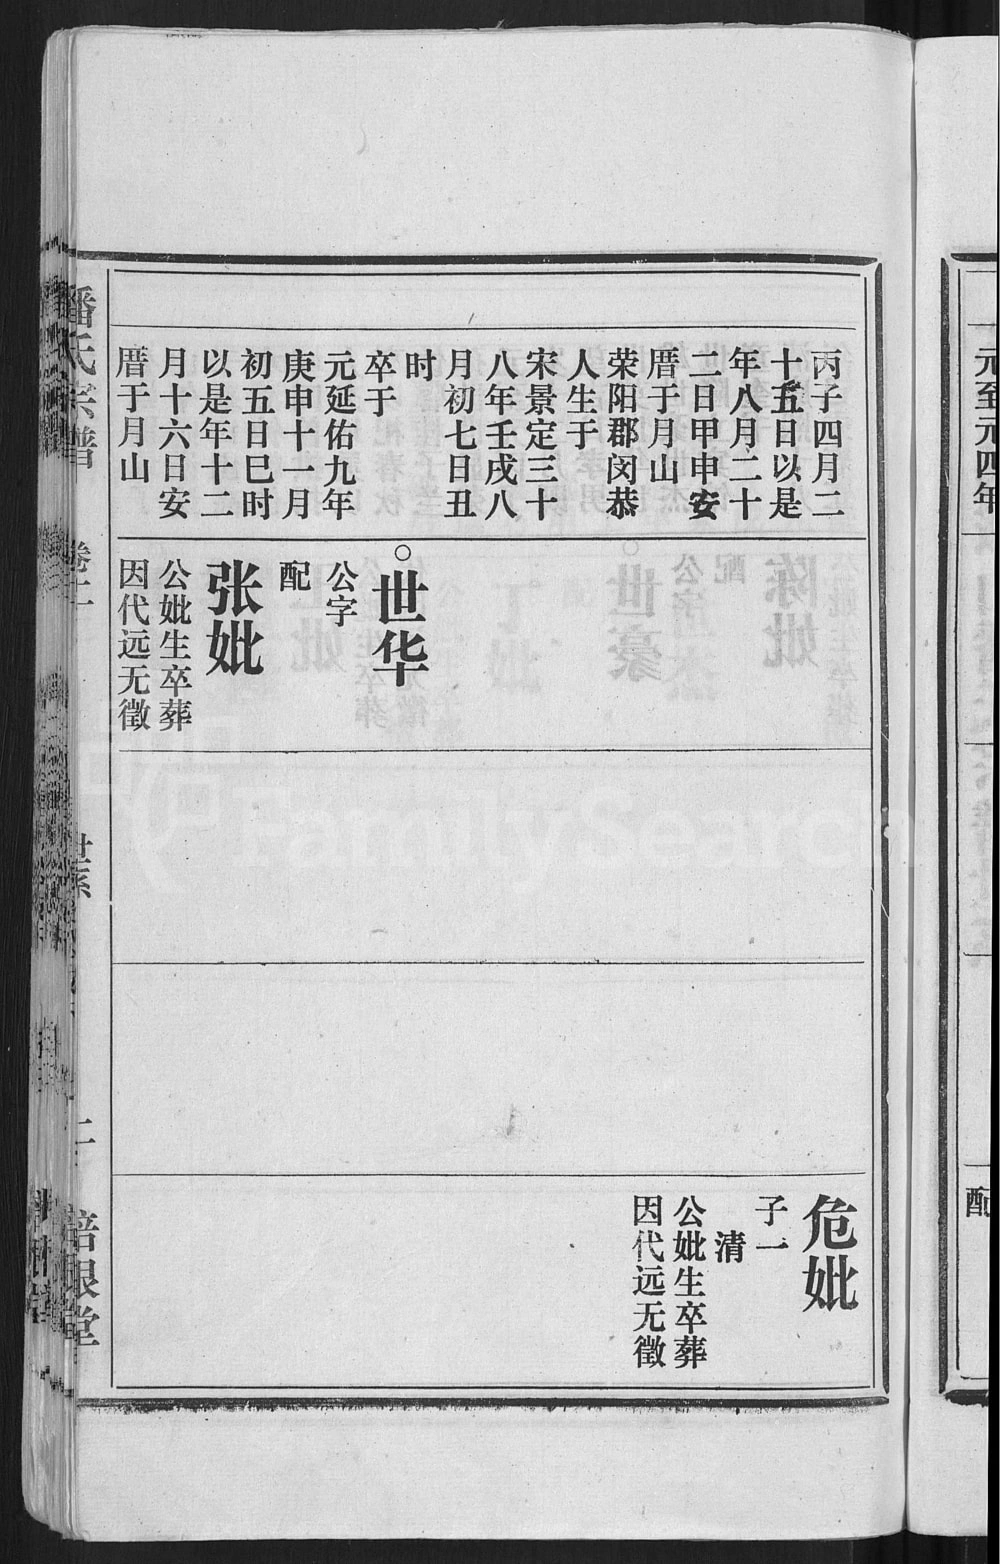 丙子四月二
十五日以是
年八月二十
二日甲申安
厝于月山
荥阳郡闵恭
人生于
宋景定三十
八年壬戌八
月初七日丑
时
卒于
元延佑九年
庚申十一月
初五日巳时
以是年十二
月十六日安
厝于月山
○世华
公字
配
张妣
公妣生卒葬
因代远无徵
危妣
子一
清
公妣生卒葬
因代远无徵
潘氏宗谱
世系
二
元至元四年
配
FamilySearch